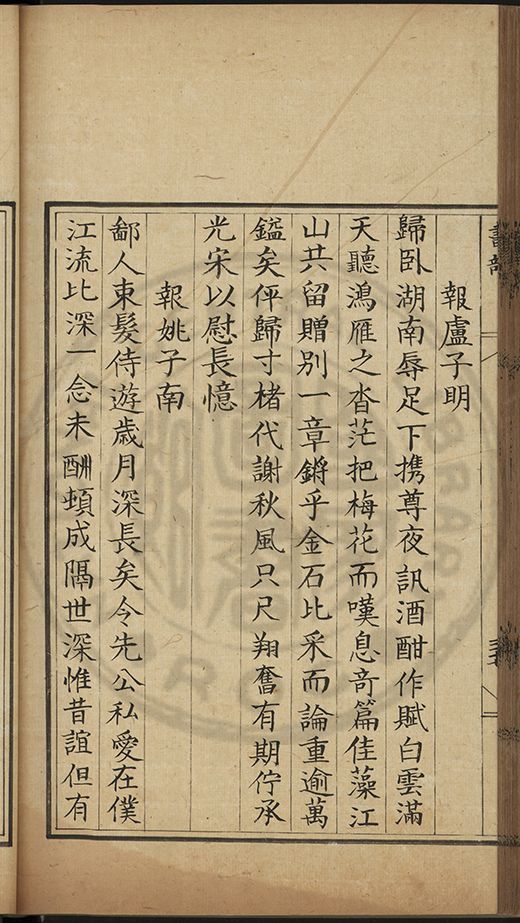 報盧子明
歸卧湖南辱足下携尊夜訊酒酣作賦白雲滿
天聽鴻雁之沓茫把梅花而嘆息奇篇佳藻江
山共留贈別一章鏘乎金石比采而論重逾萬
鎰矣伻歸寸楮代謝秋風只尺翔奮有期佇承
光宋以慰長憶
報姚子南
鄙人束髮侍遊歲月深長矣令先公私愛在僕
江流比深一念未酬頓成隔世深惟昔誼但有